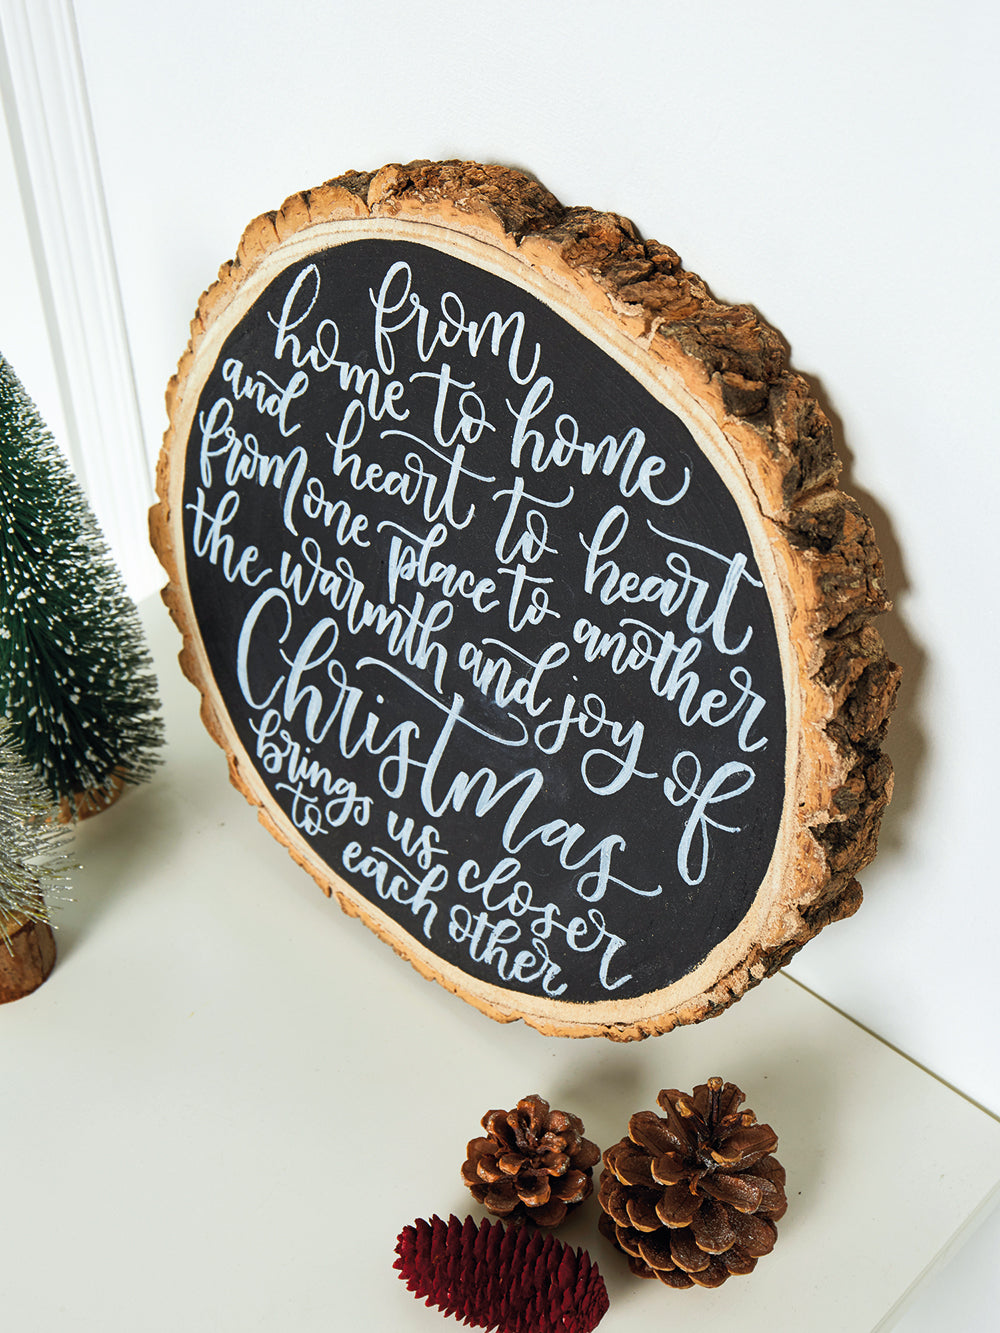 from
home to home
and heart to heart
from one place to another
the warmth and joy of
Christmas
brings us closer
to each other